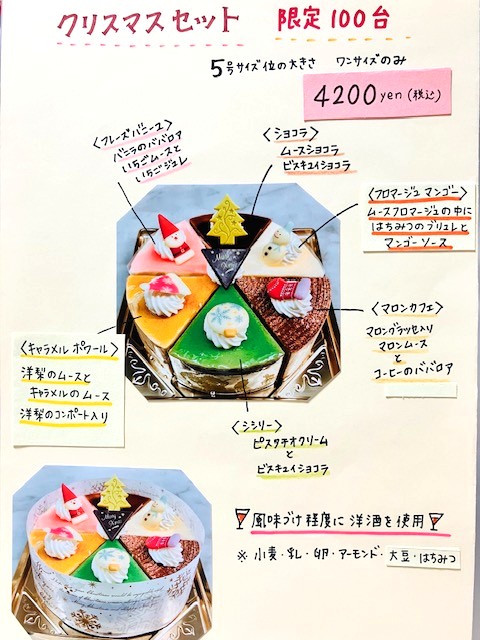 クリスマスセット 限定100台
5号サイズ位の大きさ ワンサイズのみ
4200yen(税込)
〈フレーズバニーユ〉
バニラのババロア
いちごムースと
いちごジュレ
〈ショコラ〉
ムースショコラ
ビスキュイショコラ
〈フロマージュ マンゴー〉
ムースフロマージュの中に
はちみつのブリュレと
マンゴーソース
〈マロンカフェ〉
マロングラッセ入り
マロンムース
と
コーヒーのババロア
〈キャラメル ポワール〉
洋梨のムースと
キャラメルのムース
洋梨のコンポート入り
〈シシリー〉
ピスタチオクリーム
と
ビスキュイショコラ
Merry
Xmas
風味づけ程度に洋酒を使用
※小麦・乳・卵・アーモンド・大豆・はちみつ